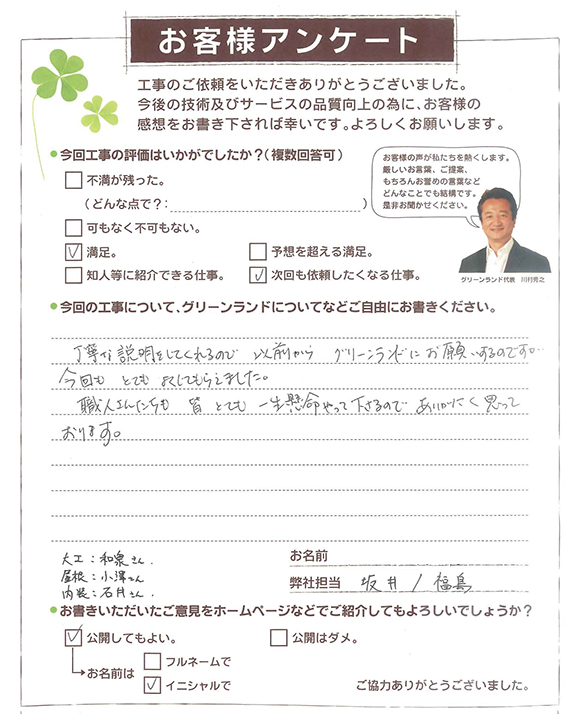 お客様アンケート
工事のご依頼をいただきありがとうございました。
今後の技術及びサービスの品質向上の為に、お客様の
感想をお書き下されば幸いです。よろしくお願いします。
今回工事の評価はいかがでしたか?(複数回答可)
不満が残った。
(どんな点で?: )
可もなく不可もない。
満足。
予想を超える満足。
知人等に紹介できる仕事。
次回も依頼したくなる仕事。
お客様の声が私たちを熱くします。
厳しいお言葉、ご提案、
もちろんお誉めの言葉など
どんなことでも結構です。
是非お聞かせください。
グリーンランド代表 川村芳之
今回の工事について、グリーンランドについてなどご自由にお書きください。
丁寧な説明をしてくれるので 以前から グリーンランドにお願いするのですが…
今回も とても よくしてもらえました。
職人さんたちも 皆 とても 一生懸命やって下さるので ありがたく思って
おります。
大工:和泉さん.
屋根:小澤さん
内装:石井さん.
お名前
弊社担当 坂井 / 福島
お書きいただいたご意見をホームページなどでご紹介してもよろしいでしょうか?
公開してもよい。
公開はダメ。
お名前は
フルネームで
イニシャルで
ご協力ありがとうございました。